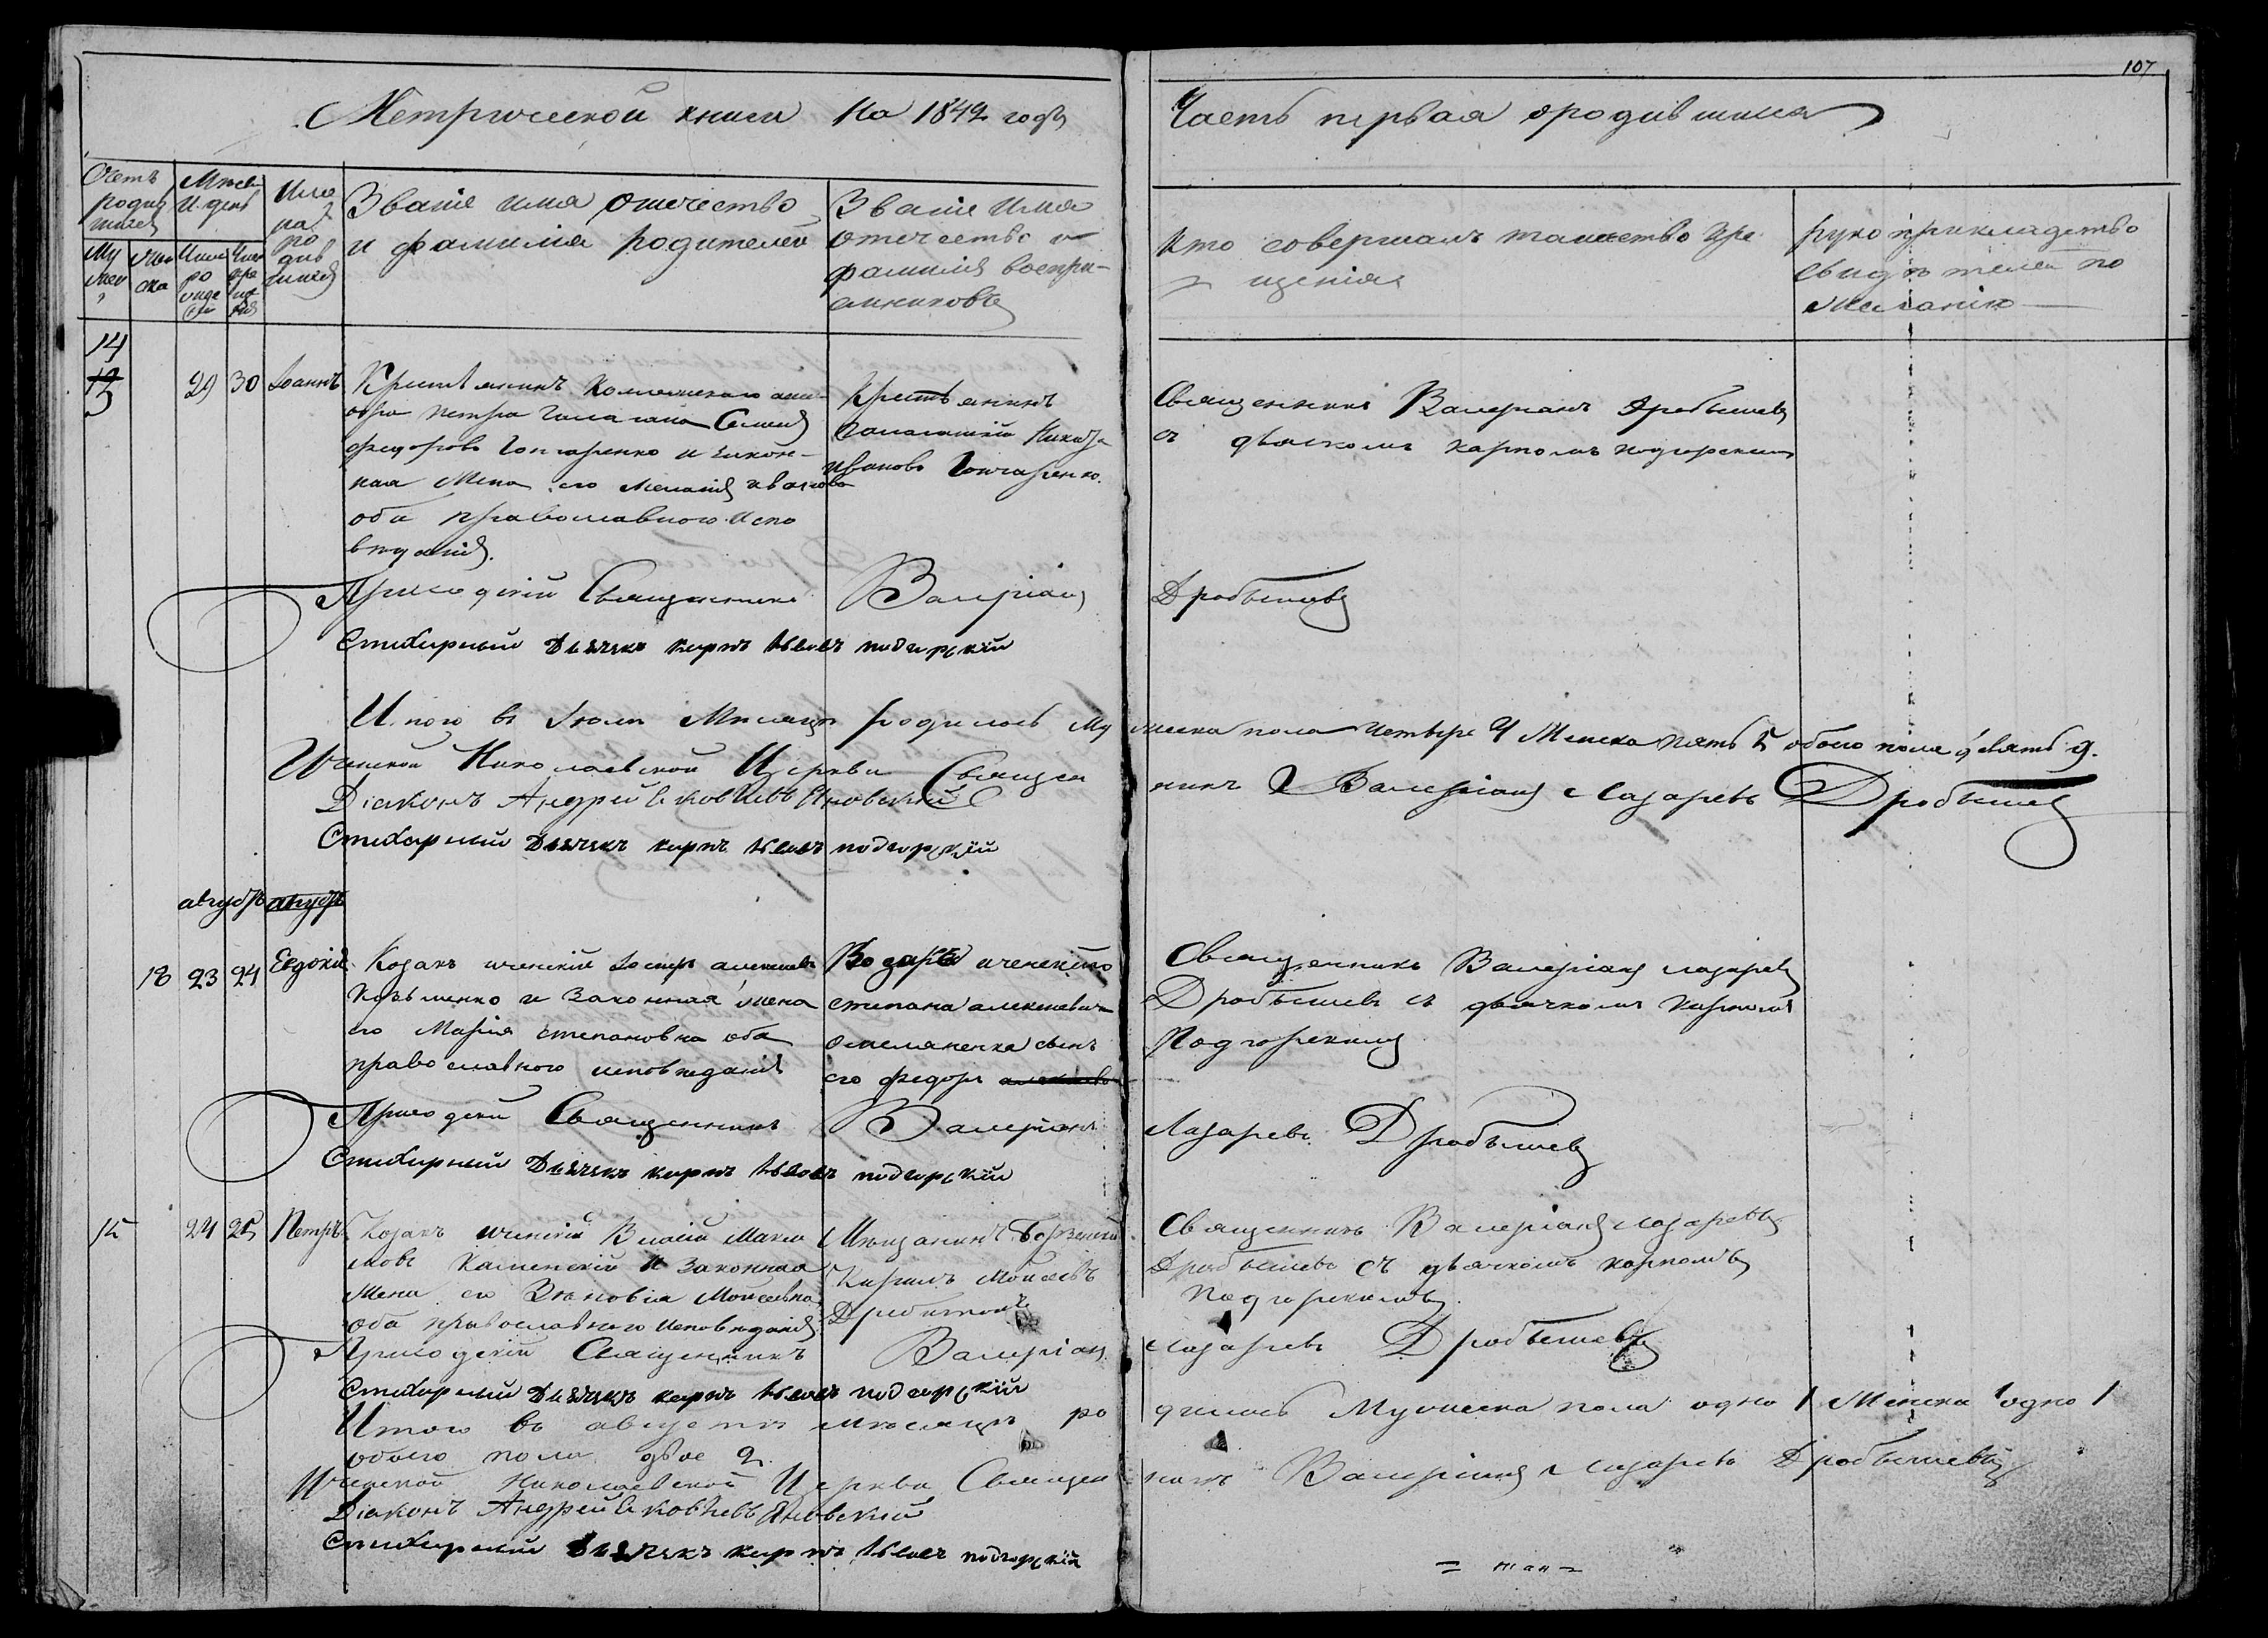 107
Метрической книги На 1842 годъ
Часть первая о родившихся
Счетъ родившихся
Мѣсяцъ и день
Имя родившихся
Званіе имя отечество и фамилія родителей
Званіе имя отечество и фамилія воспріемниковъ
Кто совершалъ таинство крещенія
рукоприкладство свидѣтелей по желанію
14
29 30 Іоаннъ
Петра Галагана Семенъ
Федоровъ Гончаренко и закон-
ная Жена его Меланія Иванова
оба православного испо
вѣданія.
Крестьянинъ
Никита
Ивановъ Гончаренко.
Священникъ Валеріанъ Дробышевъ
съ дьячкомъ Карпомъ Подгорскимъ
Приходскій Священникъ Валеріанъ Дробышевъ
Стихарный Дьячекъ Карпъ Подгорскій
Итого въ Іюлѣ Мѣсяцѣ родилось Мужеска пола четыре 4 Женска пять 5 обоего пола девять 9.
Ичанской Николаевской Церкви Священникъ Валеріанъ Лазаревъ Дробышевъ
Діаконъ Андрей Яновскій
Стихарный Дьячекъ Карпъ Подгорскій
августъ августъ
18 23 24 Евдокія
Козакъ ичанскій Алексеевъ
Кузьменко и Законная жена
его Марія Степановна оба
православного исповѣданія
Козака ичанского
Степана Алексеевича
Омеляненка сынъ
его Федоръ
Священникъ Валеріанъ Лазаревъ
Дробышевъ съ дьячкомъ Карпомъ
Подгорскимъ
Приходскій Священникъ Валеріанъ Лазаревъ Дробышевъ
Стихарный Дьячекъ Карпъ Подгорскій
15 24 25 Петръ
Козакъ ичанскій Власій Макси
мовъ Каменскій и Законная
Жена его Зиновія Моисеевна
оба православного исповѣданія
Мѣщанинъ Борзенскій
Кирилъ Моисеевъ
Священникъ Валеріанъ Лазаревъ
Дробышевъ съ дьячкомъ Карпомъ
Подгорскимъ
Приходскій Священникъ Валеріанъ Лазаревъ Дробышевъ
Стихарный Дьячекъ Карпъ Подгорскій
Итого въ августѣ мѣсяцѣ родилось Мужеска пола одно 1 Женска одно 1
обоего пола двое 2.
Ичанской Николаевской Церкви Священникъ Валеріанъ Лазаревъ Дробышевъ
Діаконъ Андрей Яновскій
Стихарный Дьячекъ Карпъ Подгорскій